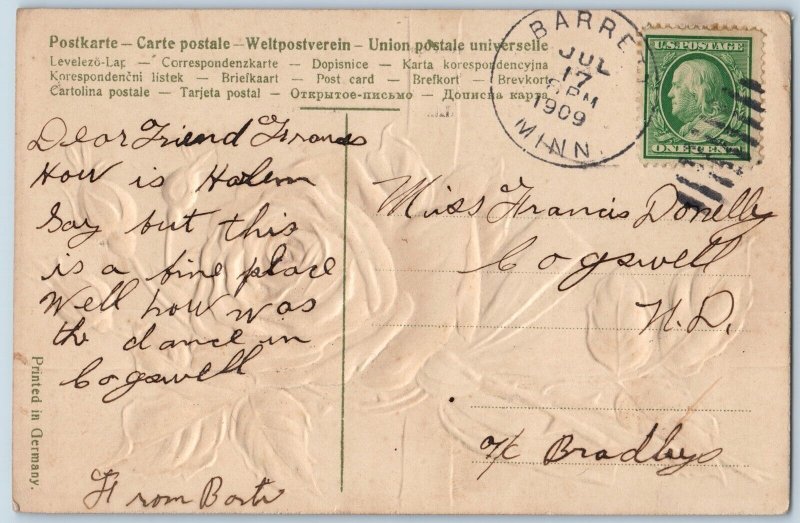 Postkarte – Carte postale – Weltpostverein – Union postale universelle
Levelező-Lap — Correspondenzkarte — Dopisnice — Karta korespondencyjna
Korespondenční lístek — Briefkaart — Post card — Brefkort — Brevkort
Cartolina postale — Tarjeta postal — Открытое-письмо — Дописна карта
BARRE
JUL
17
PM
1909
MINN.
U.S. POSTAGE
ONE CENT
Dear Friend Francis
How is
Say but this
is a fine place
Well how was
the dance in
Cogswell
From
Miss Francis Donelly
Cogswell
N.D.
c/o Bradleys
Printed in Germany.